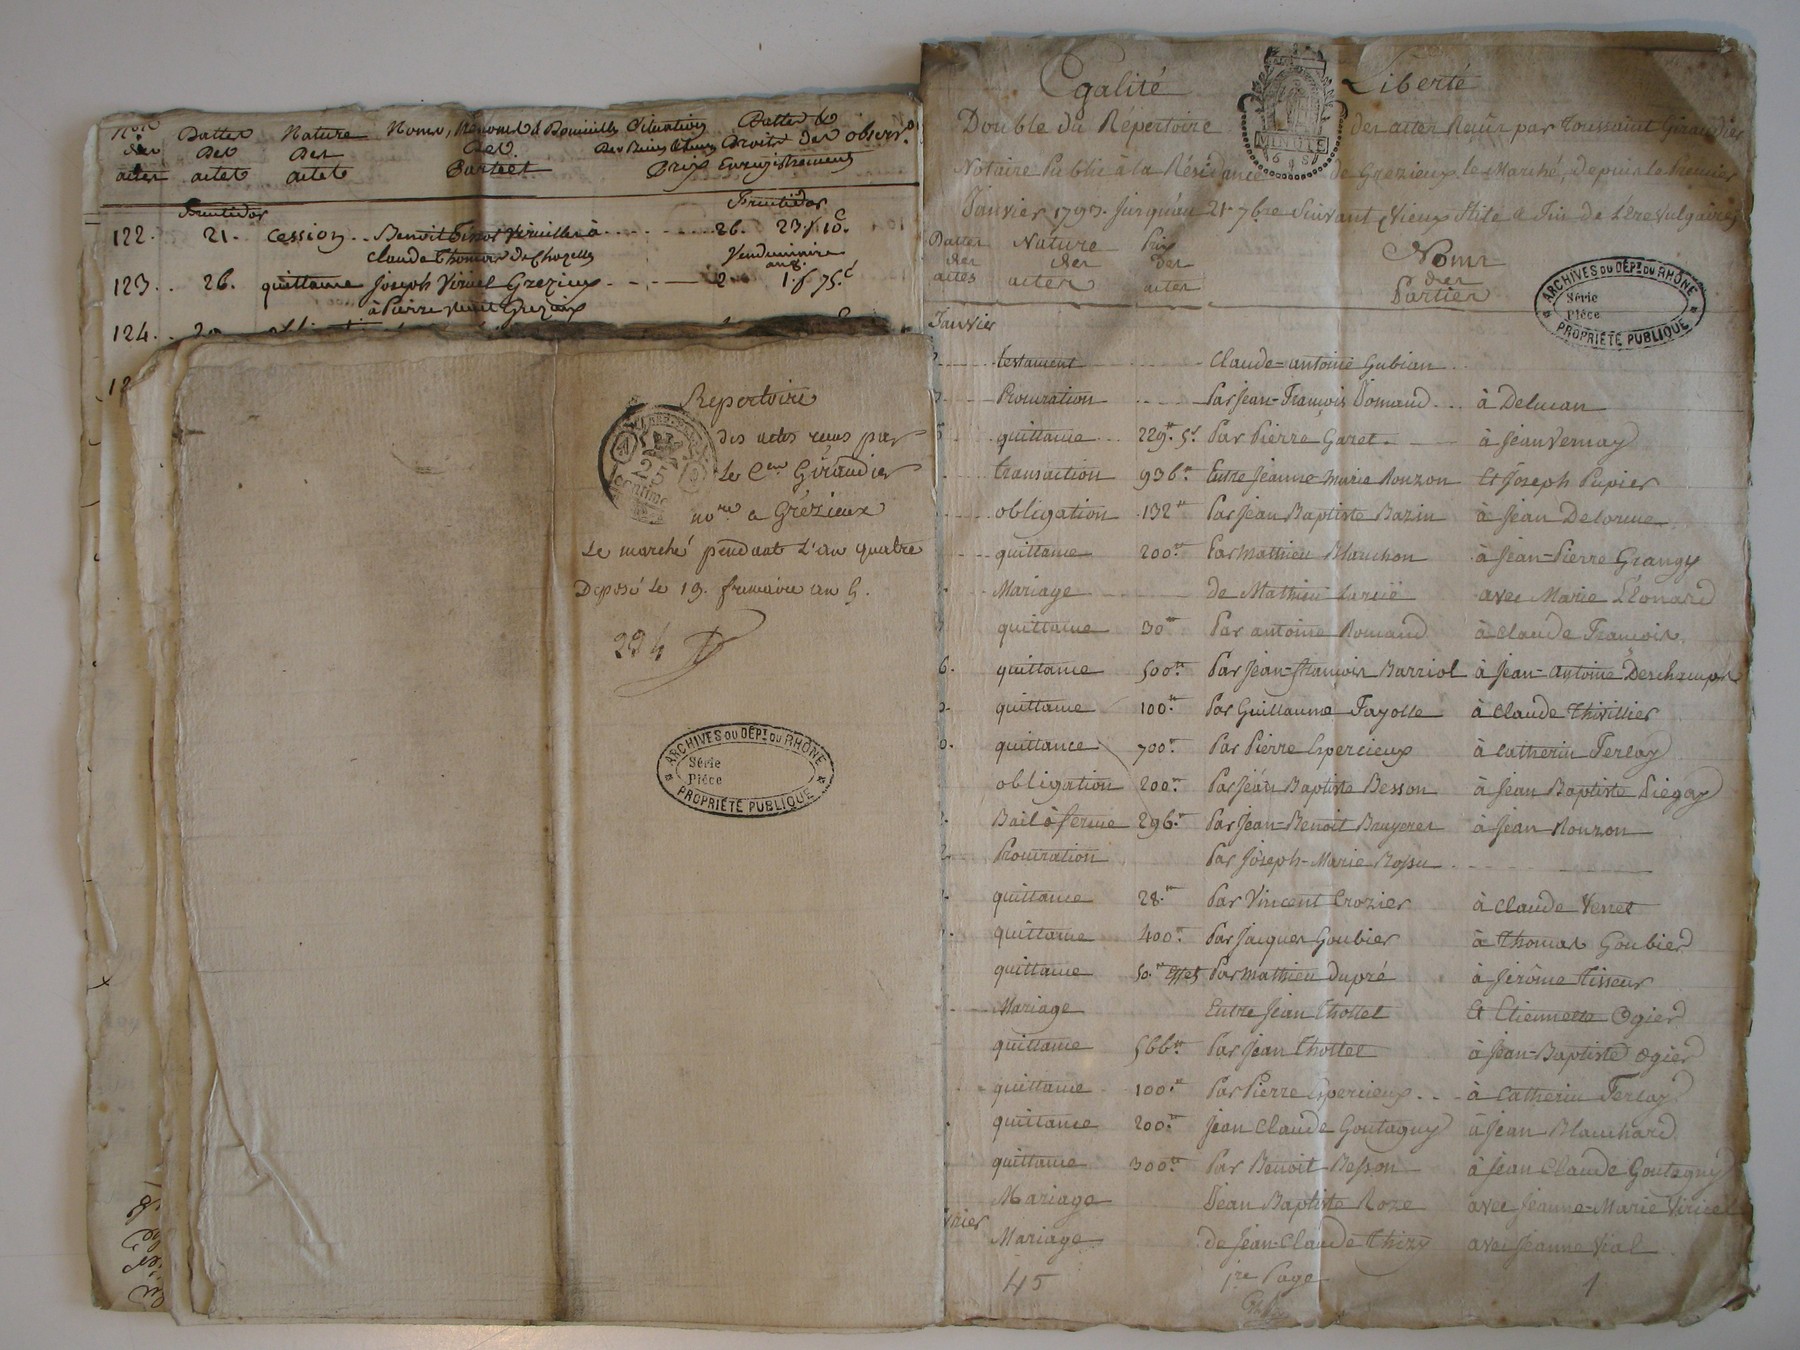 Nos des actes
Dattes Des actes
Nature Des actes
Noms, Prénoms & Domicilles Des Parties
Situation Des Biens & leurs Prix
Dattes & Droits des Enregistrements
observ.
Fructidor
Fructidor
122. 21. Cession Benoit à 26. 23f 10c
Claude Thomas De Chazelles
Vendemiaire an
123. 26. quittance Joseph Viricel Grezieux 2 1.f 75c
à Pierre Grezieux
124.
12
Repertoire
des actes reçus par
Le Cen Giraudier
nore a Grézieux
Le marché pendant L'an quatre
Deposé Le 19. frimaire an 5.
234
25
centimes
ARCHIVES DU DÉPT DU RHÔNE
Série
Pièce
PROPRIÉTÉ PUBLIQUE
Egalité Liberté
MINUTE
Double du Répertoire des actes Reçus par Toussaint Giraudier
Notaire Public à la Résidence de Grezieux le Marché, depuis le Premier
Janvier 1793. Jusqu'au 21. 7bre Suivant (Vieux Stile & Fin de L'ere Vulgaire)
Dattes des actes
Nature des actes
Prix des actes
Noms des Parties
ARCHIVES DU DÉPT DU RHÔNE
Série
Pièce
PROPRIÉTÉ PUBLIQUE
Janvier
testament Claude-antoine Gubian
Procuration Par Jean-François Ponnaud à Delucan
quittance 229.tt 5s Par Pierre Garet à Jean Vernay
transaction 936.tt Entre Jeanne Marie Ronzon Et Joseph Pupier
obligation 132tt Par Jean Baptiste Bazin à Jean Delorme
quittance 200.tt Par Mathieu Blanchon à Jean-Pierre Grangy
Mariage de Mathieu avec Marie Léonard
quittance 30tt Par antoine Romand à Claude François
6. quittance 500.tt Par Jean-François Barriol à Jean-Antoine Deschamps
quittance 100.tt Par Guillaume Fayolle à Claude Thivillier
0. quittance 700.tt Par Pierre Epercieux à Catherin Ferlay
obligation 200.tt Par Jean Baptiste Besson à Jean Baptiste Piégay
Bail à ferme 296.tt Par Jean-Benoit Bruyeres à Jean Ronzon
Procuration Par Joseph-Marie Rossu
quittance 28.tt Par Vincent Crozier à Claude Verret
quittance 400.tt Par Jacques Goubier à Thomas Goubier
quittance 50.tt Effets Par Mathieu Dupré à Jérôme Tisseur
Mariage Entre Jean Thollet Et Etiennette Ogier
quittance 566.tt Par Jean Thollet à Jean-Baptiste Ogier
quittance 100.tt Par Pierre Epercieux à Catherin Ferlay
quittance 200.tt Jean Claude Goutagny à Jean Blanchard
quittance 300.tt Par Benoit Besson à Jean Claude Goutagny
Mariage Jean Baptiste Roze avec Jeanne-Marie Viricel
vrier
Mariage de Jean-Claude Thizy avec Jeanne Vial
45 1re Page 1